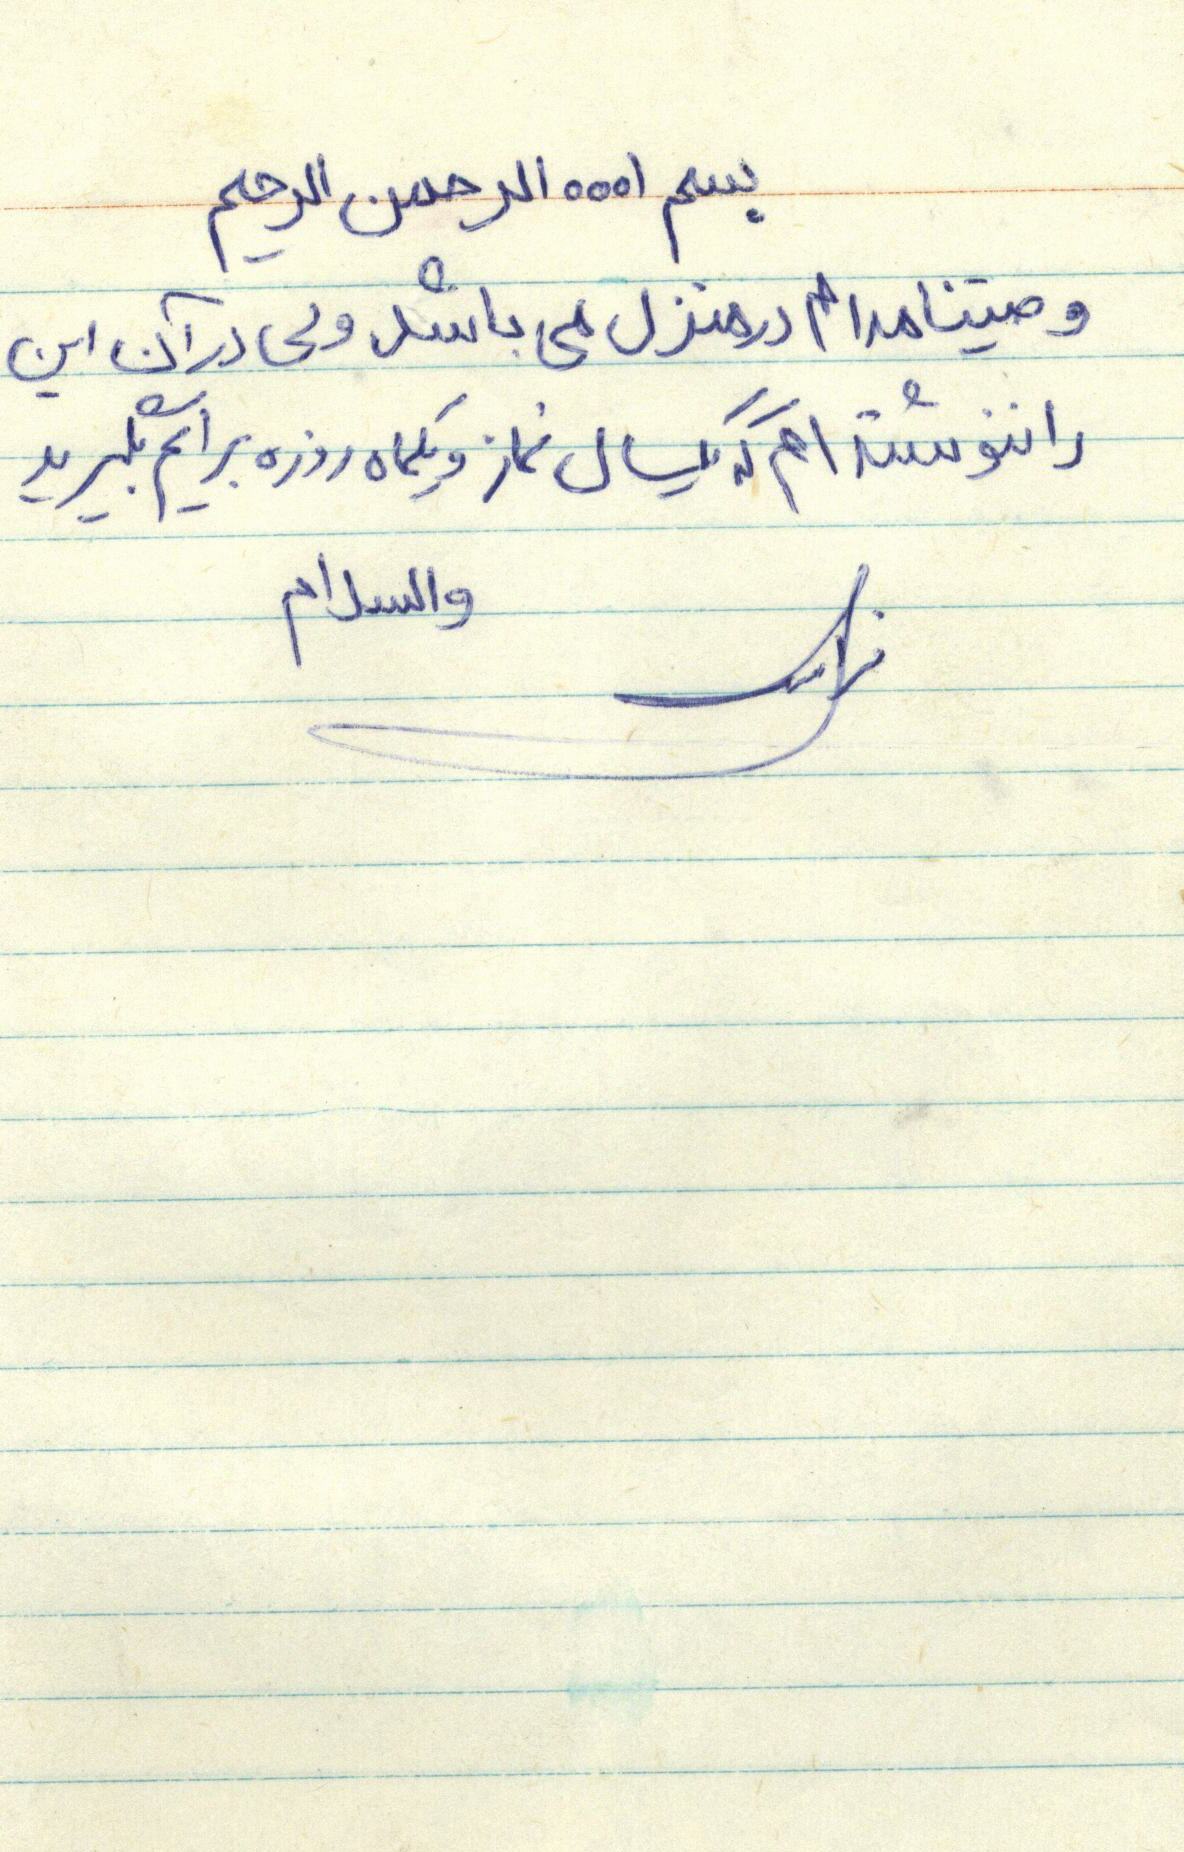 بسم ا... الرحمن الرحیم
وصیتنامه ام در منزل می باشد ولی در آن این
را ننوشته ام که یکسال نماز و یکماه روزه برایم بگیرید
والسلام